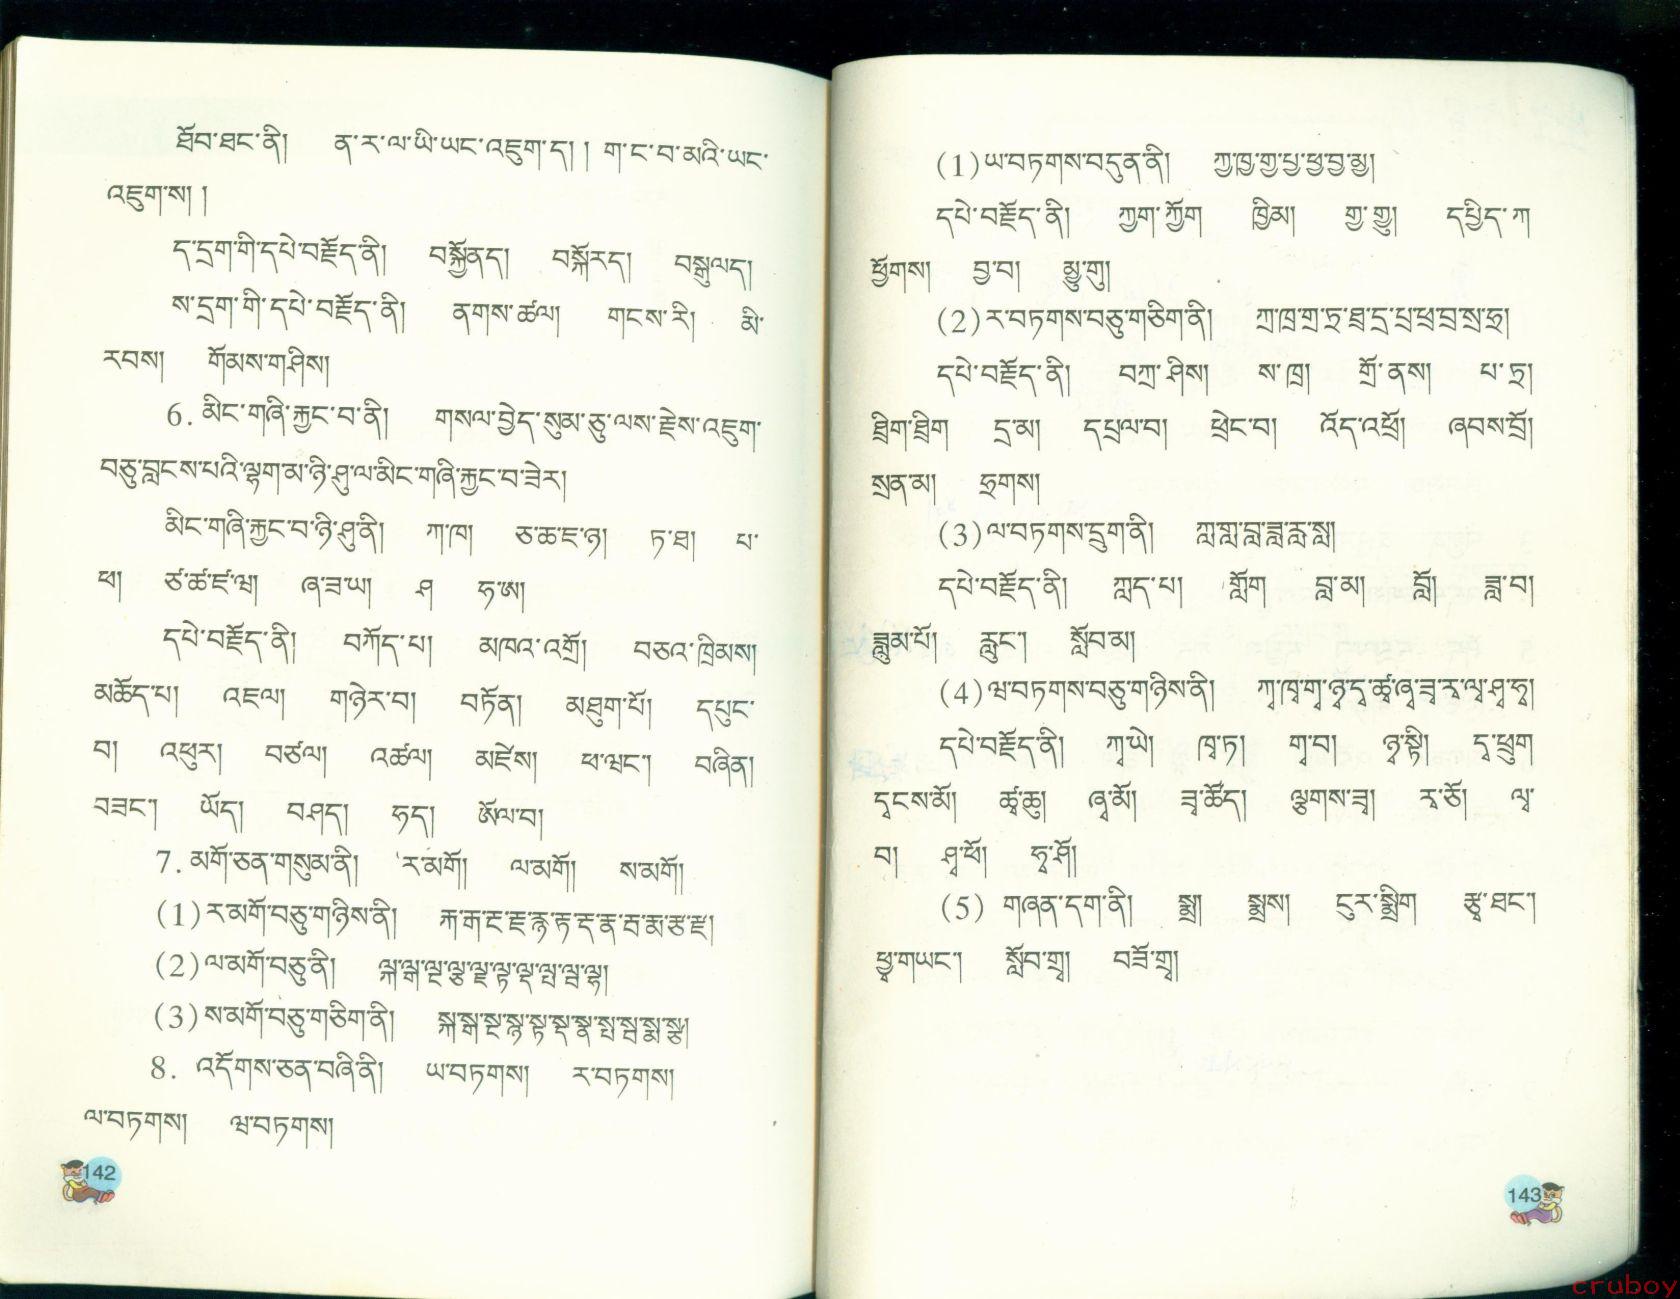 ཐོབ་ཐང་ནི།  ན་ར་ལ་ཡི་ཡང་འཇུག་ད། ། ག་ང་བ་མའི་ཡང་
འཇུག་ས། །
ད་དྲག་གི་དཔེ་བརྗོད་ནི།  བསྐྱོནད།  བསྐོརད།  བསྒྲུལད།
ས་དྲག་གི་དཔེ་བརྗོད་ནི།  ནགས་ཚལ།  གངས་རི།  མི་
རབས།  གོམས་གཤིས།
6. མིང་གཞི་རྐྱང་བ་ནི།  གསལ་བྱེད་སུམ་ཅུ་ལས་རྗེས་འཇུག་
བཅུ་བླངས་པའི་ལྷག་མ་ཉི་ཤུ་ལ་མིང་གཞི་རྐྱང་བ་ཟེར།
མིང་གཞི་རྐྱང་བ་ཉི་ཤུ་ནི།  ཀ་ཁ།  ཅ་ཆ་ཇ་ཉ།  ཏ་ཐ།  པ་
ཕ།  ཙ་ཚ་ཛ་ཝ།  ཞ་ཟ་ཡ།  ཤ  ཧ་ཨ།
དཔེ་བརྗོད་ནི།  བཀོད་པ།  མཁའ་འགྲོ།  བཅའ་ཁྲིམས།
མཆོད་པ།  འཇལ།  གཉེར་བ།  བཏོན།  མཐུག་པོ།  དཔུང་
བ།  འཕུར།  བཙལ།  འཚལ།  མཛེས།  ཕ་ཝང་།  བཞིན།
བཟང་།  ཡོད།  བཤད།  ཧད།  ཨོལ་བ།
7. མགོ་ཅན་གསུམ་ནི།  ར་མགོ།  ལ་མགོ།  ས་མགོ།
(1) ར་མགོ་བཅུ་གཉིས་ནི།  རྐ་རྒ་རྔ་རྗ་རྙ་རྟ་རྡ་རྣ་རྦ་རྨ་རྩ་རྫ།
(2) ལ་མགོ་བཅུ་ནི།  ལྐ་ལྒ་ལྔ་ལྕ་ལྗ་ལྟ་ལྡ་ལྤ་ལྦ་ལྷ།
(3) ས་མགོ་བཅུ་གཅིག་ནི།  སྐ་སྒ་སྔ་སྙ་སྟ་སྡ་སྣ་སྤ་སྦ་སྨ་སྩ།
8. འདོགས་ཅན་བཞི་ནི།  ཡ་བཏགས།  ར་བཏགས།
ལ་བཏགས།  ཝ་བཏགས།
142
(1) ཡ་བཏགས་བདུན་ནི།  ཀྱ་ཁྱ་གྱ་པྱ་ཕྱ་བྱ་མྱ།
དཔེ་བརྗོད་ནི།  ཀྱག་ཀྱོག  ཁྱིམ།  གྱ་གྱུ།  དཔྱིད་ཀ
ཕྱོགས།  བྱ་བ།  མྱུ་གུ།
(2) ར་བཏགས་བཅུ་གཅིག་ནི།  ཀྲ་ཁྲ་གྲ་ཏྲ་ཐྲ་དྲ་པྲ་ཕྲ་བྲ་སྲ་ཧྲ།
དཔེ་བརྗོད་ནི།  བཀྲ་ཤིས།  ས་ཁྲ།  གྲོ་ནས།  པ་ཏྲ།
ཐྲིག་ཐྲིག  དྲ་མ།  དཔྲལ་བ།  ཕྲེང་བ།  འོད་འཕྲོ།  ཞབས་བྲོ།
སྲན་མ།  ཧྲགས།
(3) ལ་བཏགས་དྲུག་ནི།  ཀླ་གླ་བླ་ཟླ་རླ་སླ།
དཔེ་བརྗོད་ནི།  ཀླད་པ།  གློག  བླ་མ།  བློ།  ཟླ་བ།
ཟླུམ་པོ།  རླུང་།  སློབ་མ།
(4) ཝ་བཏགས་བཅུ་གཉིས་ནི།  ཀྭ་ཁྭ་གྭ་ཉྭ་དྭ་ཚྭ་ཞྭ་ཟྭ་རྭ་ལྭ་ཤྭ་ཧྭ།
དཔེ་བརྗོད་ནི།  ཀྭ་ཡེ།  ཁྭ་ཏ།  གྭ་བ།  ཉྭ་སྟི།  དྭ་ཕྲུག
དྭངས་མོ།  ཚྭ་ཆུ།  ཞྭ་མོ།  ཟྭ་ཚོད།  ལྕགས་ཟྭ།  རྭ་ཅོ།  ལྭ་
བ།  ཤྭ་ཕོ།  ཧྭ་ཤོ།
(5) གཞན་དག་ནི།  སྨྲ།  སྨྲས།  ངུར་སྨྲིག  རྩྭ་ཐང་།
ཕྱྭ་གཡང་།  སློབ་གྲྭ།  བཟོ་གྲྭ།
143
cruboy